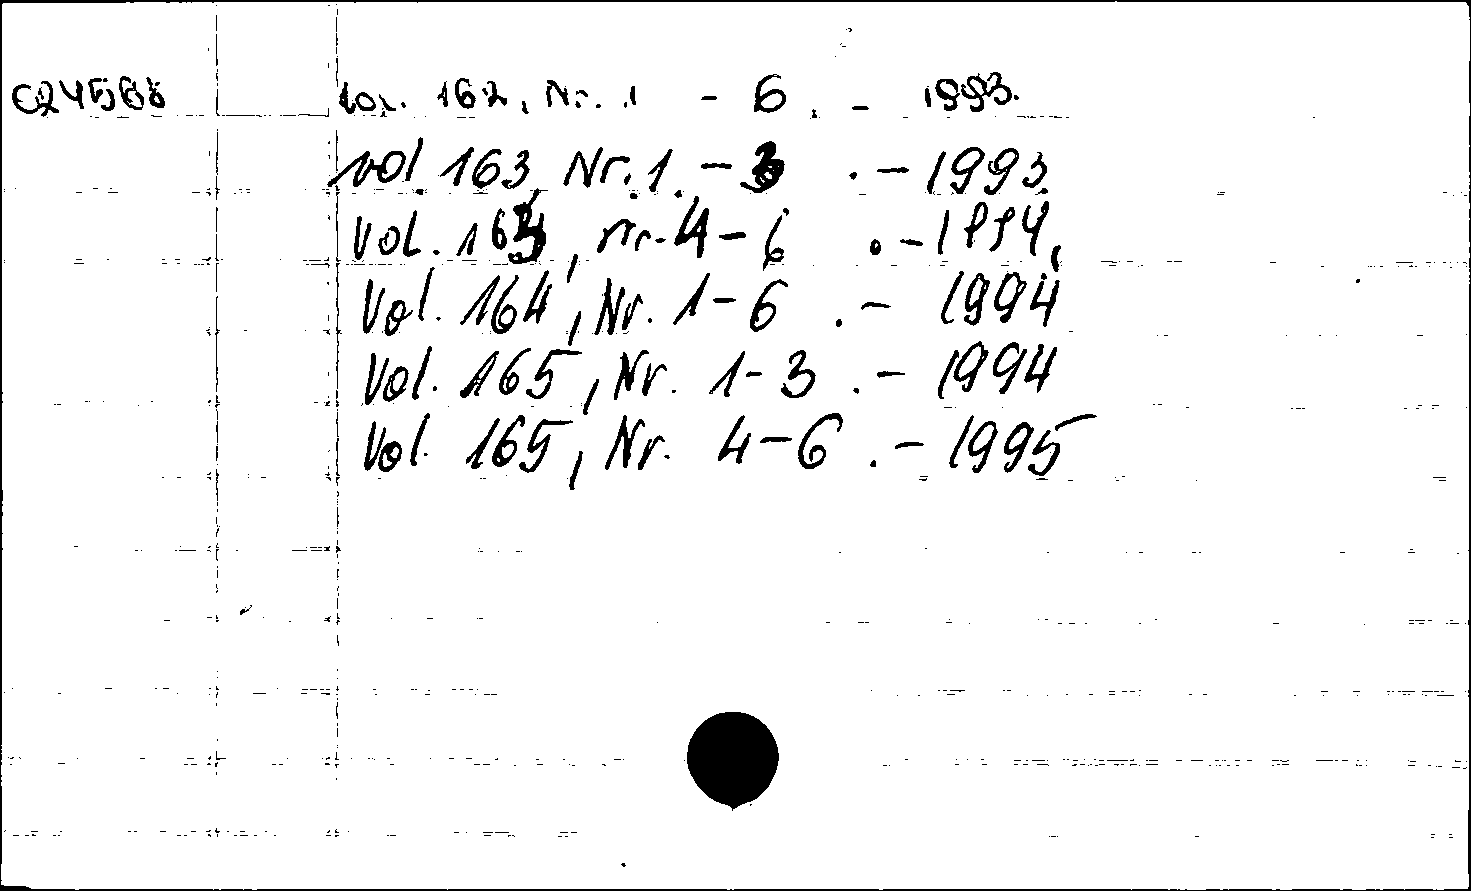 C24568 vol. 162, Nr. 1 - 6. - 1993.
vol. 163, Nr. 1. - 3 . - 1993.
Vol. 163, nr. 4 - 6 . - 1994.
Vol. 164, Nr. 1 - 6 . - 1994
Vol. 165, Nr. 1 - 3 . - 1994
Vol. 165, Nr. 4 - 6 . - 1995